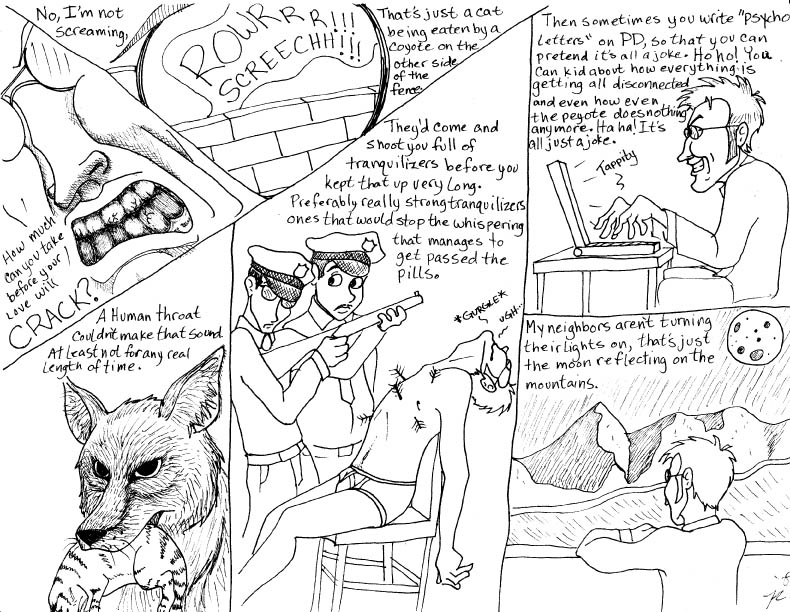 No, I'm not
screaming,
ROWRRR!!!
SCREECHH!!!
That's just a cat
being eaten by a
Coyote on the
other side
of the
fence.
How much
can you take
before your
Love will
CRACK?
A Human throat
Couldn't make that sound
At least not for any real
Length of time.
They'd come and
shoot you full of
tranquilizers before you
kept that up very Long.
Preferably really strong tranquilizers
ones that would stop the whispering
that manages to
get passed the
pills.
*GURGLE*
UGH...
Then sometimes you write "psycho
Letters" on PD, so that you can
pretend it's all a joke. Ho ho! You
Can kid about how everything is
getting all disconnected
and even how even
the peyote does nothing
anymore. Ha ha! It's
all just a joke.
Tappity
My neighbors aren't turning
their Lights on, that's just
the moon reflecting on the
mountains.